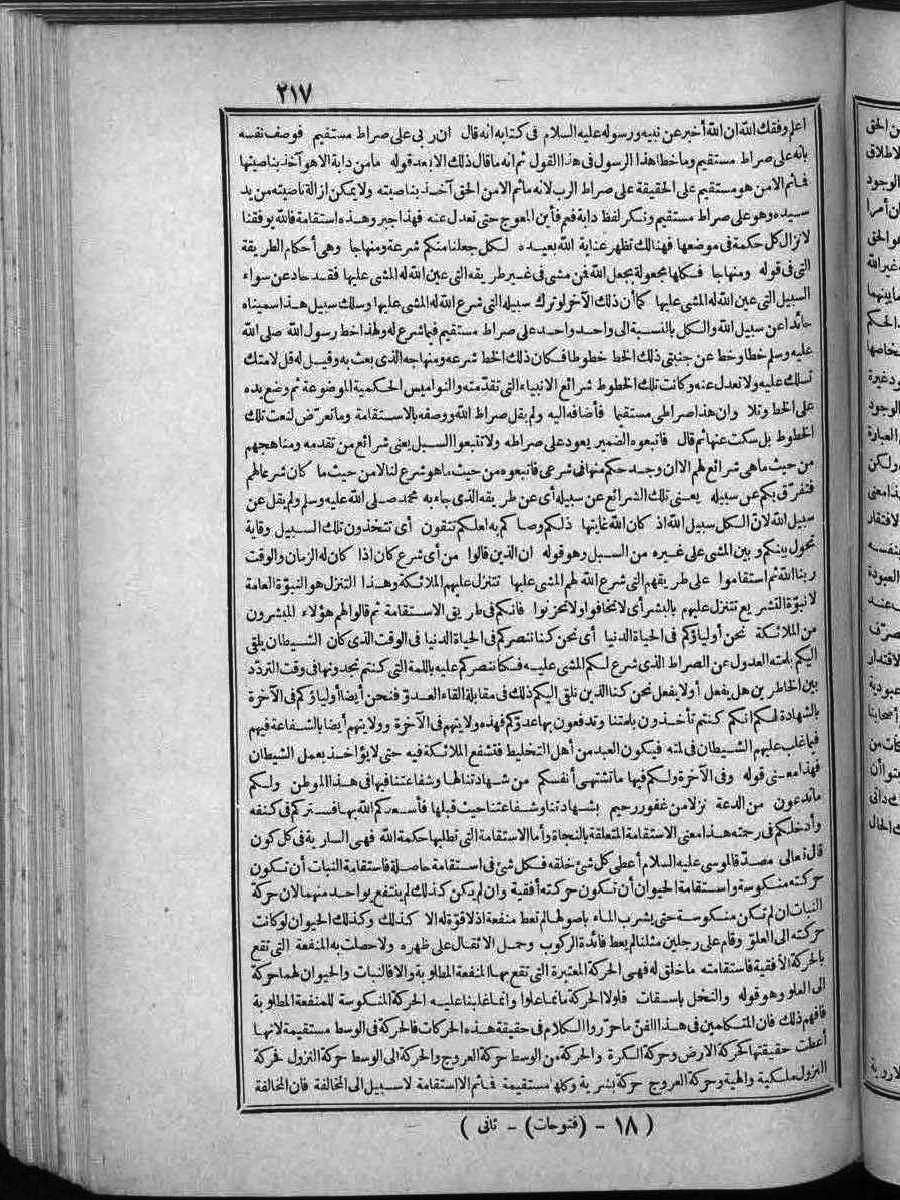 ٢١٧
اعلم وفقك الله ان الله أخبر عن نبيه ورسوله عليه السلام في كتابه انه قال ان ربى على صراط مستقيم فوصف نفسه
بانه على صراط مستقيم وما خطأ هذا الرسول في هذا القول ثم انه ما قال ذلك الا بعد قوله ما من دابة الا هو آخذ بناصيتها
فما ثم الا من هو مستقيم على الحقيقة على صراط الرب لانه ما ثم الا من الحق آخذ بناصيته ولا يمكن ازالة ناصيته من يد
سيده وهو على صراط مستقيم ونكر لفظ دابة فعم فأين المعوج حتى تعدل عنه فهذا جبر وهذه استقامة فالله يوفقنا
لانزال كل حكمة في موضعها فهنالك تظهر عناية الله بعبده لكل جعلنا منكم شرعة ومنهاجا وهى أحكام الطريقة
التى في قوله ومنهاجا فكلها مجعولة بجعل الله فمن مشى في غير طريقه التى عين الله له المشى عليها فقد حاد عن سواء
السبيل التى عين الله له المشى عليها كما أن ذلك الآخر لو ترك سبيله التى شرع الله له المشى عليها وسلك سبيل هذا سميناه
حائدا عن سبيل الله والكل بالنسبة الى واحد واحد على صراط مستقيم فيما شرع له ولهذا خط رسول الله صلى الله
عليه وسلم خطا وخط عن جنبتى ذلك الخط خطوطا فكان ذلك الخط شرعه ومنهاجه الذى بعث به وقيل له قل لامتك
تسلك عليه ولا تعدل عنه وكانت تلك الخطوط شرائع الانبياء التى تقدمته والنواميس الحكمية الموضوعة ثم وضع يده
على الخط وتلا وان هذا صراطى مستقيما فأضافه اليه ولم يقل صراط الله ووصفه بالاستقامة وما تعرض لنعت تلك
الخطوط بل سكت عنها ثم قال فاتبعوه الضمير يعود على صراطه ولا تتبعوا السبل يعنى شرائع من تقدمه ومناهجهم
من حيث ما هى شرائع لهم الا ان وجد حكم منها في شرعى فاتبعوه من حيث ما هو شرع لنا لا من حيث ما كان شرعا لهم
فتفرق بكم عن سبيله يعنى تلك الشرائع عن سبيله أى عن طريقه الذى جاء به محمد صلى الله عليه وسلم ولم يقل عن
سبيل الله لان الكل سبيل الله اذ كان الله غايتها ذلكم وصاكم به لعلكم تتقون أى تتخذون تلك السبيل وقاية
تحول بينكم وبين المشى على غيره من السبل وهو قوله ان الذين قالوا من أى شرع كان اذا كان له الزمان والوقت
ربنا الله ثم استقاموا على طريقهم التى شرع الله لهم المشى عليها تتنزل عليهم الملائكة وهذا التنزل هو النبوة العامة
لا نبوة التشريع تتنزل عليهم بالبشر أى لا تخافوا ولا تحزنوا فانكم في طريق الاستقامة ثم قالوا لهم هؤلاء المبشرون
من الملائكة نحن أولياؤكم في الحياة الدنيا أى نحن كنا ننصركم في الحياة الدنيا في الوقت الذى كان الشيطان يلقى
اليكم بلمته العدول عن الصراط الذى شرع لكم المشى عليه فكنا ننصركم عليه باللمة التى كنتم تجدونها في وقت التردد
بين الخاطرين هل يفعل أو لا يفعل نحن كنا الذين نلقى اليكم ذلك في مقابلة القاء العدو فنحن أيضا أولياؤكم في الآخرة
بالشهادة لكم انكم كنتم تأخذون بلمتنا وتدفعون بها عدوكم فهذه ولايتهم في الآخرة وولايتهم أيضا بالشفاعة فيهم
فيما غلب عليهم الشيطان في لمته فيكون العبد من أهل التخليط فتشفع الملائكة فيه حتى لا يؤاخذ بعمل الشيطان
فهذا معنى قوله وفى الآخرة ولكم فيها ما تشتهى أنفسكم من شهادتنا لها وشفاعتنا فيها في هذا الموطن ولكم
ما تدعون من الدعة نزلا من غفور رحيم بشهادتنا وشفاعتنا حيث قبلها فأسعدكم الله بها فستركم في كنفه
وأدخلكم في رحته هذا معنى الاستقامة المتعلقة بالنجاة وأما الاستقامة التى تطلبها حكمة الله فهى السارية في كل كون
قال تعالى مصدقا لموسى عليه السلام أعطى كل شئ خلقه فكل شئ في استقامة حاصلة فاستقامة النبات أن تكون
حركته منكوسة واستقامة الحيوان أن تكون حركته أفقية وان لم يكن كذلك لم ينتفع بواحد منهما لان حركة
النبات ان لم تكن منكوسة حتى يشرب الماء باصولها لم تعط منفعة اذ لا قوة له الا كذلك وكذلك الحيوان لو كانت
حركته الى العلو وقام على رجلين مثلنا لم يعط فائدة الركوب وحمل الاثقال على ظهره ولا حصلت به المنفعة التى تقع
بالحركة الأفقية فاستقامته ما خلق له فهى الحركة المعتبرة التى تقع بها المنفعة المطلوبة والا فالنبات والحيوان لهما حركة
الى العلو وهو قوله والنخل باسقات فلولا الحركة ما نما علوا وانما غلبنا عليه الحركة المنكوسة للمنفعة المطلوبة
فافهم ذلك فان المتكلمين في هذا الفن ما حرروا الكلام في حقيقة هذه الحركات فالحركة في الوسط مستقيمة لانها
أعطت حقيقتها كحركة الارض وحركة الكرة والحركة من الوسط حركة العروج والحركة الى الوسط حركة النزول فحركة
النزول ملكية والهية وحركة العروج حركة بشرية وكلها مستقيمة فما ثم الا استقامة لا سبيل الى المخالفة فان المخالفة
( ١٨ - (فتوحات) - ثانى )